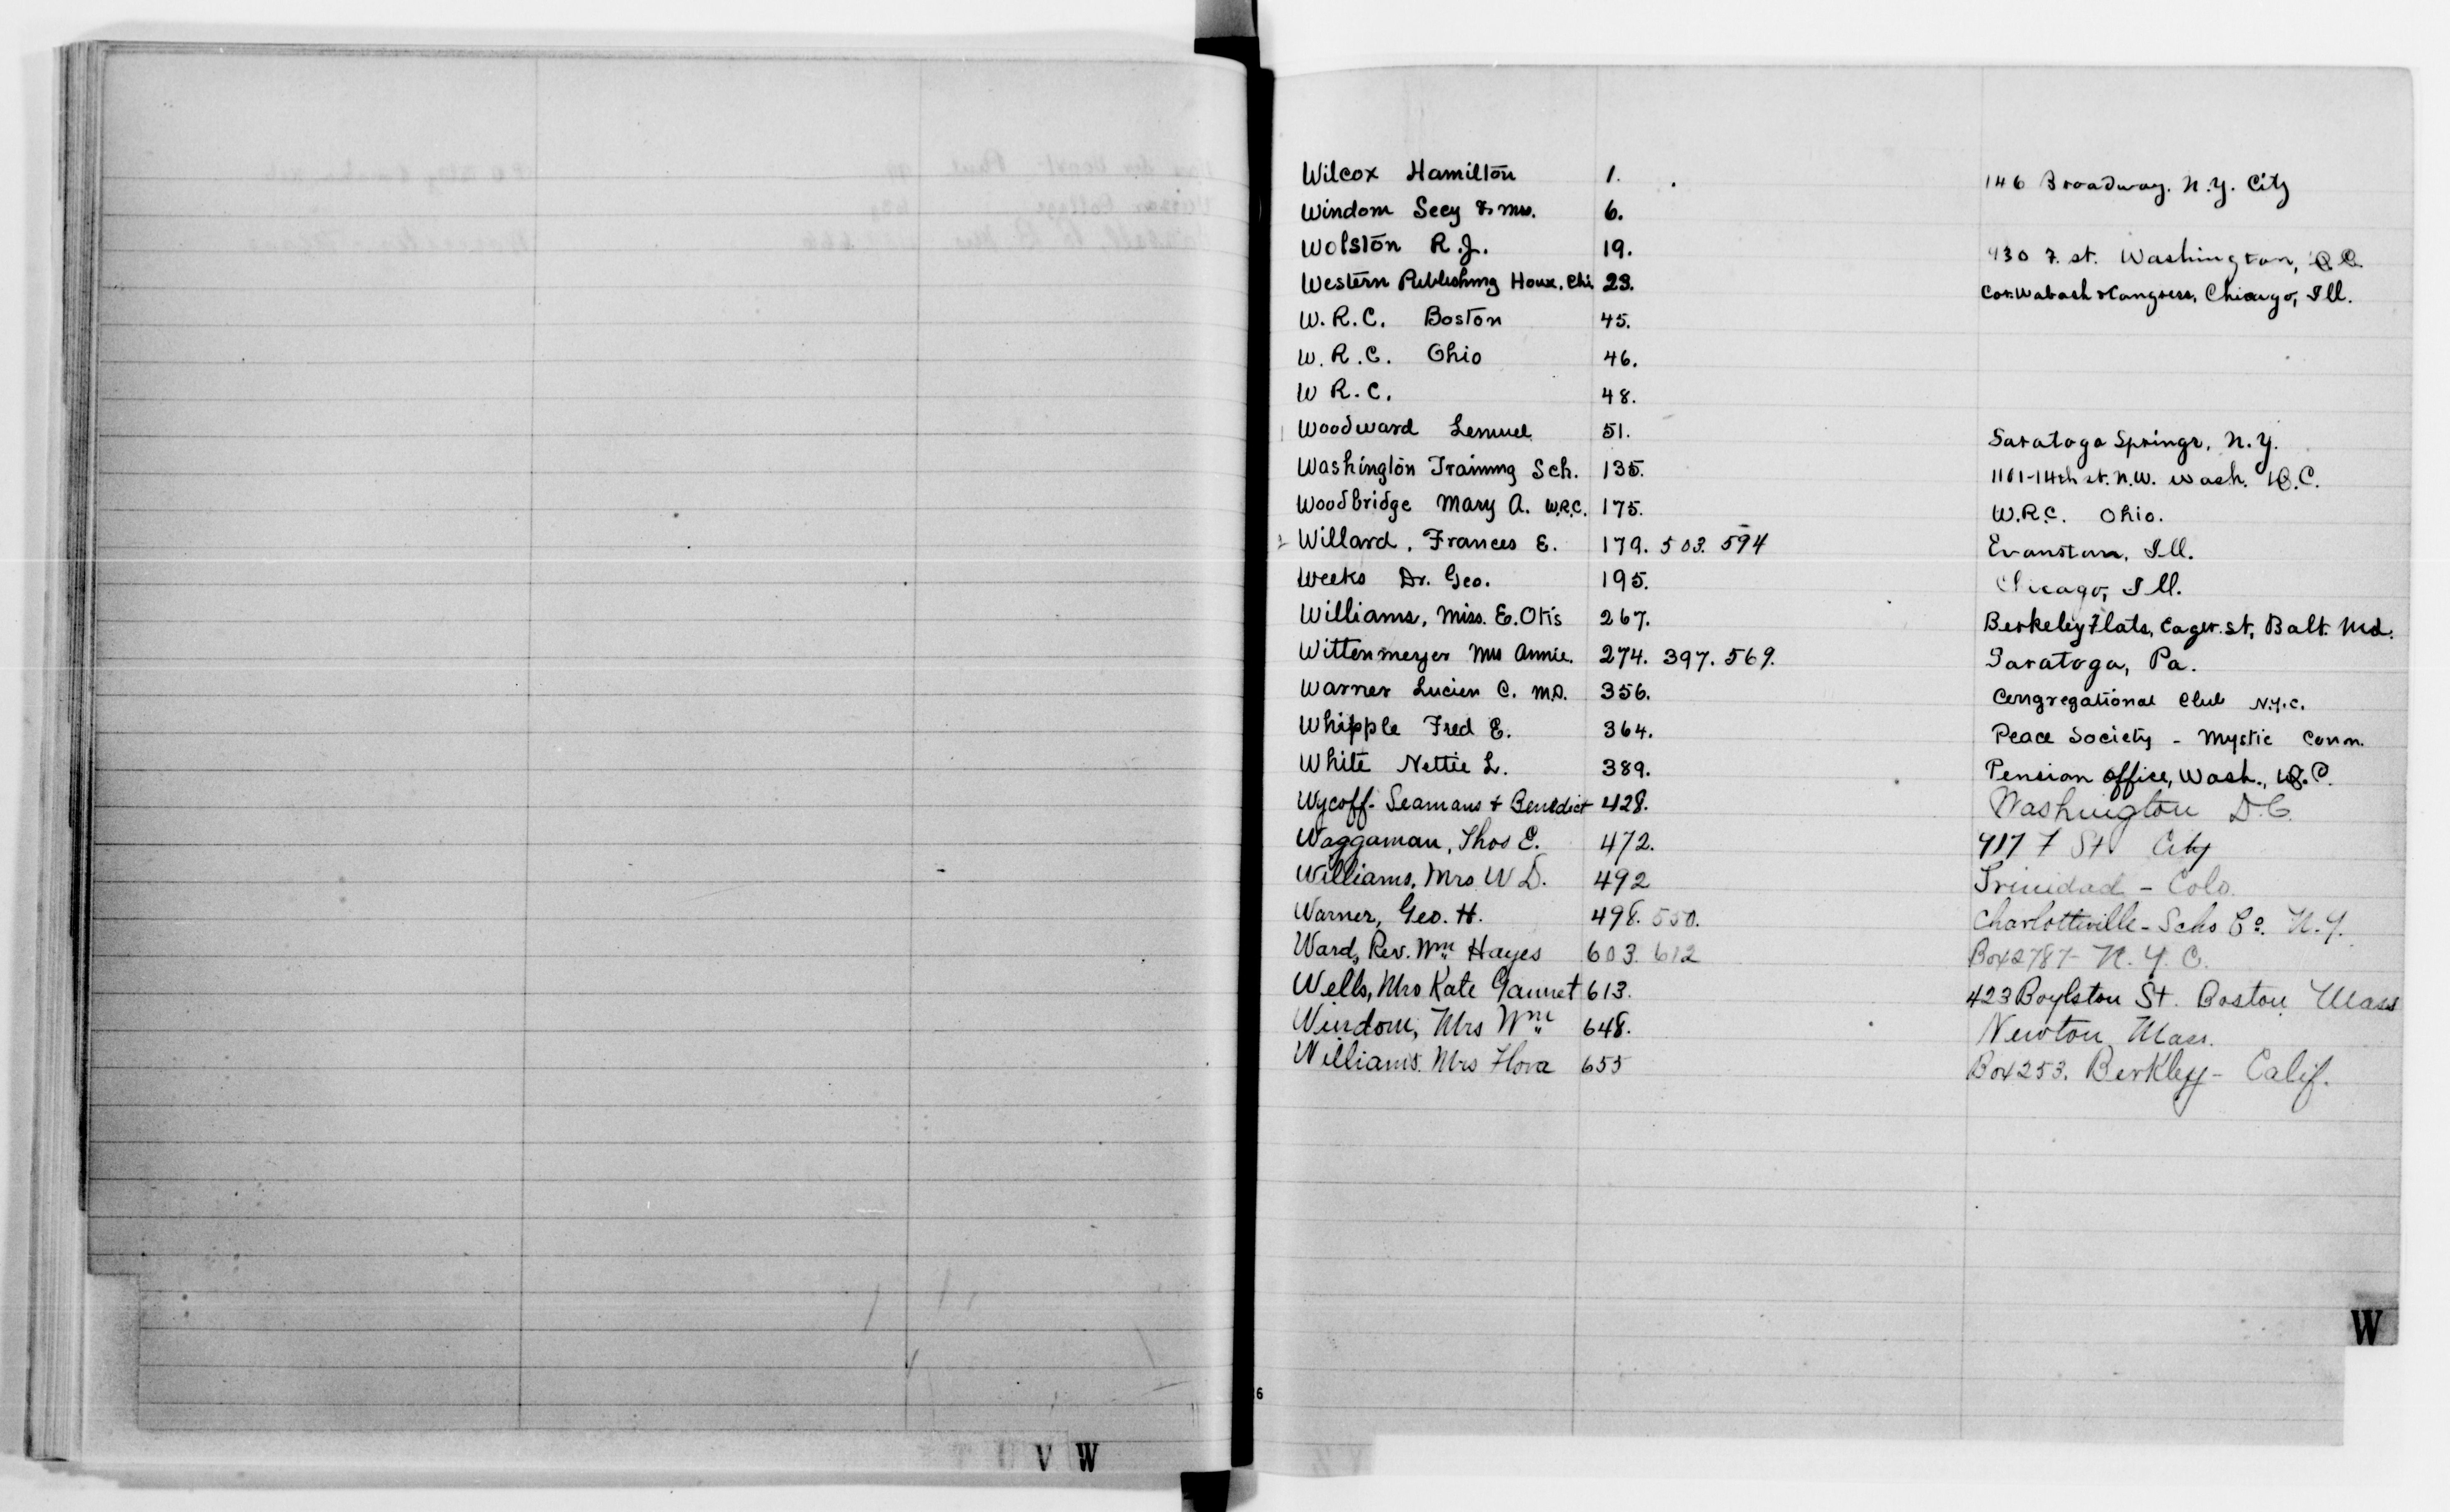 Wilcox Hamilton 1. 146 Broadway. N.Y. City
Windom Secy & Mrs. 6.
Wolston R.J. 19. 930 F. st. Washington, D.C.
Western Publishing House, Chi. 23. Cor. Wabash & Congress, Chicago, Ill.
W.R.C. Boston 45.
W.R.C. Ohio 46.
W R.C. 48.
Woodward Lemuel 51. Saratoga Springs, N.Y.
Washington Training Sch. 135. 1101-14th st. N.W. Wash. D.C.
Woodbridge Mary A. W.R.C. 175. W.R.C. Ohio.
Willard, Frances E. 179. 503. 594 Evanston, Ill.
Weeks Dr. Geo. 195. Chicago, Ill.
Williams, Miss. E. Otis 267. Berkeley Flats, Eager. st, Balt. Md.
Wittenmeyer Mrs Annie. 274. 397. 569. Saratoga, Pa.
Warner Lucien C. M.D. 356. Congregational Club N.Y.C.
Whipple Fred E. 364. Peace Society - Mystic Conn.
White Nettie L. 389. Pension Office, Wash., D.C.
Wycoff- Seamans & Benedict 428. Washington D.C.
Waggaman, Thos E. 472. 917 F St City
Williams, Mrs W D. 492 Trinidad - Colo.
Warner, Geo. H. 498. 550. Charlotteville - Scho Co. N.Y.
Ward, Rev. Wm Hayes 603. 612 Box 2787- N.Y.C.
Wells, Mrs Kate Gannet 613. 423 Boylston St. Boston Mass
Windom, Mrs Wm 648. Newton Mass.
Williams. Mrs Flora 655 Box 253. Berkley - Calif.
W
6
V W